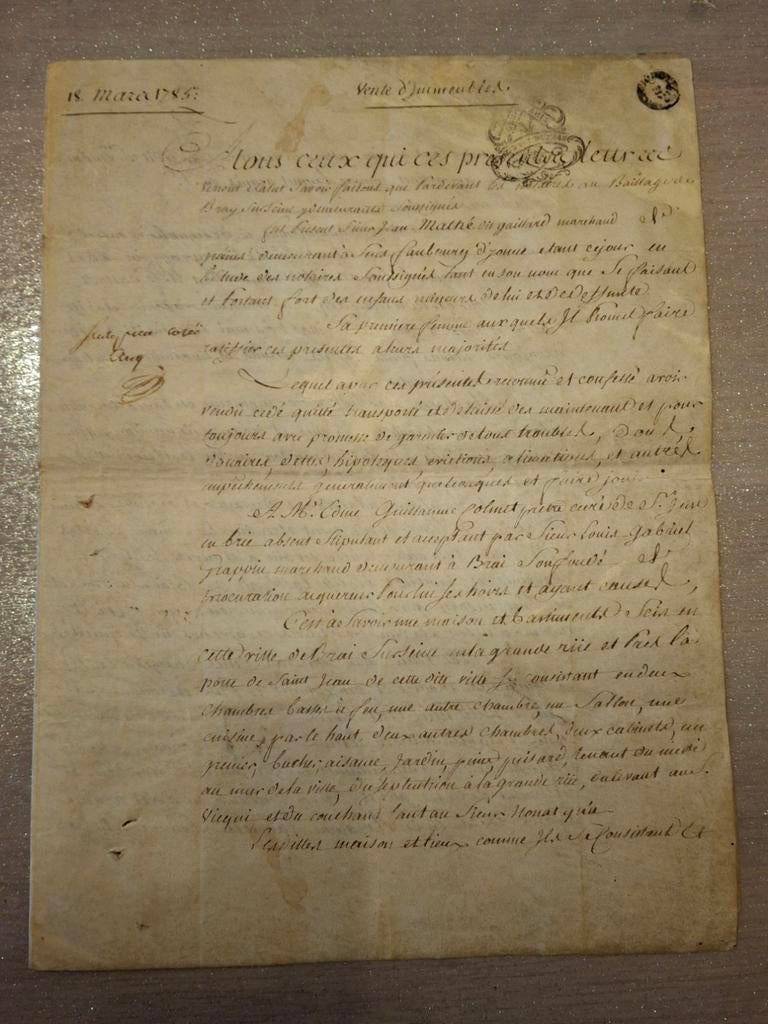 18 Mars 1785.
Vente d'immeubles.
A tous ceux qui ces presentes lettres
verront salut savoir faisons que pardevant les notaires au Bailliage de
Bray sur seine y demeurants soussignés
fut present Sieur Jean Mathé dit gaillard marchand
demeurant à Sens faubourg d'yonne etant cejour en
l'étude des notaires soussignés tant en son nom que se faisant
et portant fort des enfans mineurs de lui et de deffunte
sa premiere femme auxquels Il Promet faire
ratiffier ces presentes a leurs majorités
Lequel a par ces présentes reconnu et confessé avoir
vendu cedé quitté transporté et delaissé des maintenant et pour
toujours avec promesse de garantir de tous troubles, Dons,
Douaires, dettes, hipoteques, evictions, alienations, et autres
empechements generalement quelconques et faire jouir
A Mr. Edme Guillaume Colmet pretre curé de St.
en brie absent stipulant et acceptant par Sieur Louis Gabriel
Grappin marchand demeurant à Brai son fondé de
procuration acquereur pour lui ses hoirs et ayant causes,
C'est à Savoir une maison et batiments Scis en
cette ville de Brai sur seine en la grande rüe et Pres la
porte de Saint Jean de cette dite ville consistant en deux
chambres basses à feu, une autre chambre, un Sallon, une
cuisine, par le haut deux autres chambres, deux cabinets, un
grenier, bucher, aisance, Jardin, puits, puisard, tenant du midi
au mur de la ville, du septentrion à la grande rüe, du levant au S.
Vicqui et du couchant tant au Sieur Nonat qu'a
Lesdittes maison et lieux comme Ils se Consistent Et